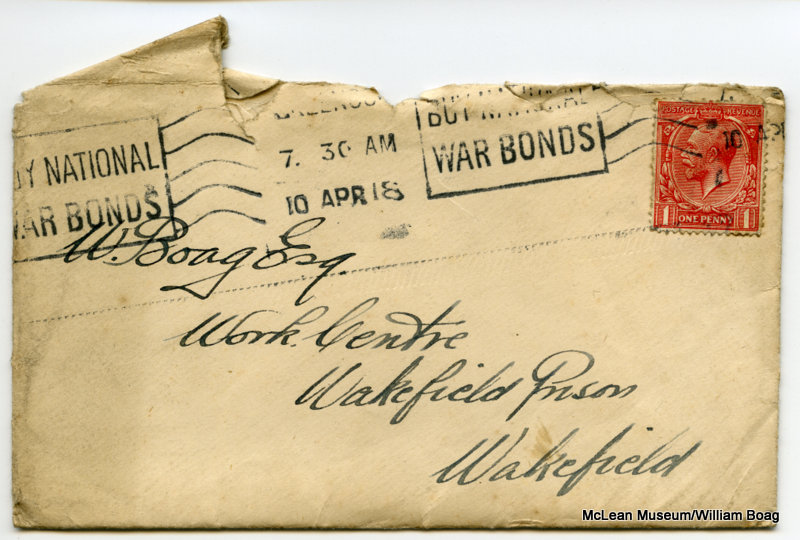 BUY NATIONAL
WAR BONDS
7. 30 AM
10 APR 18
BUY NATIONAL
WAR BONDS
10 APR
POSTAGE REVENUE
1 ONE PENNY 1
W. Boag Esq.
Work. Centre
Wakefield Prison
Wakefield
McLean Museum/William Boag